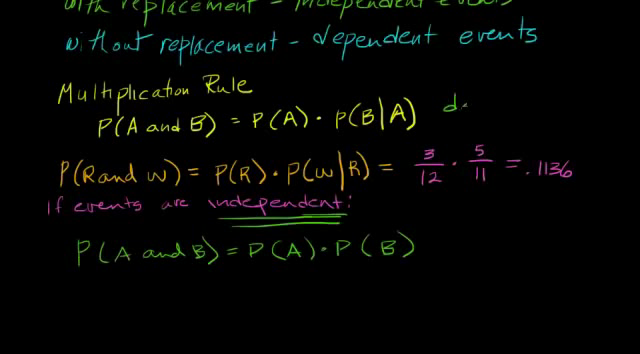 with replacement - independent events
without replacement - dependent events
Multiplication Rule
P(A and B) = P(A) · P(B|A) d
P(R and W) = P(R) · P(W|R) = 3/12 · 5/11 = .1136
If events are independent:
P(A and B) = P(A) · P(B)